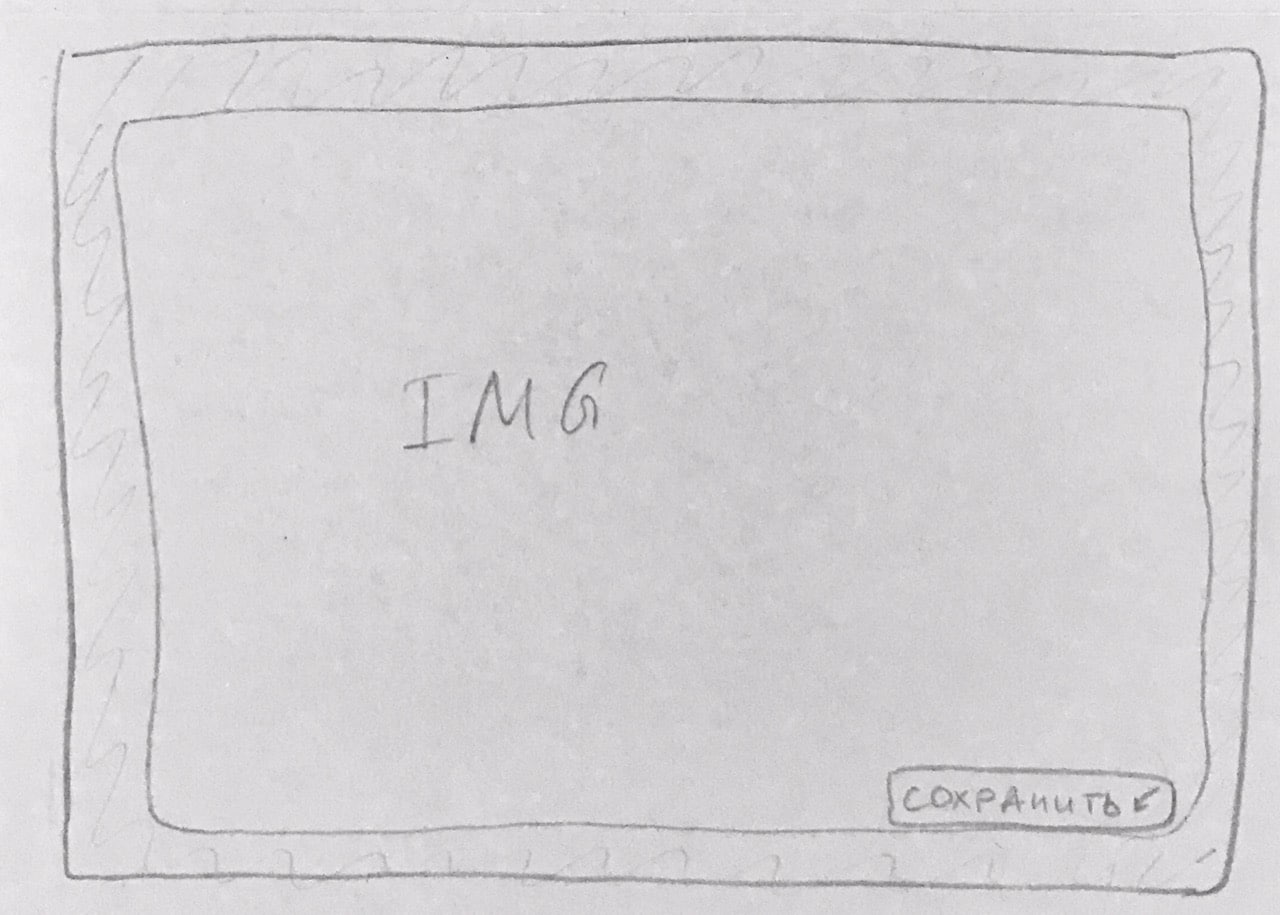 IMG
СОХРАНИТЬ ↙